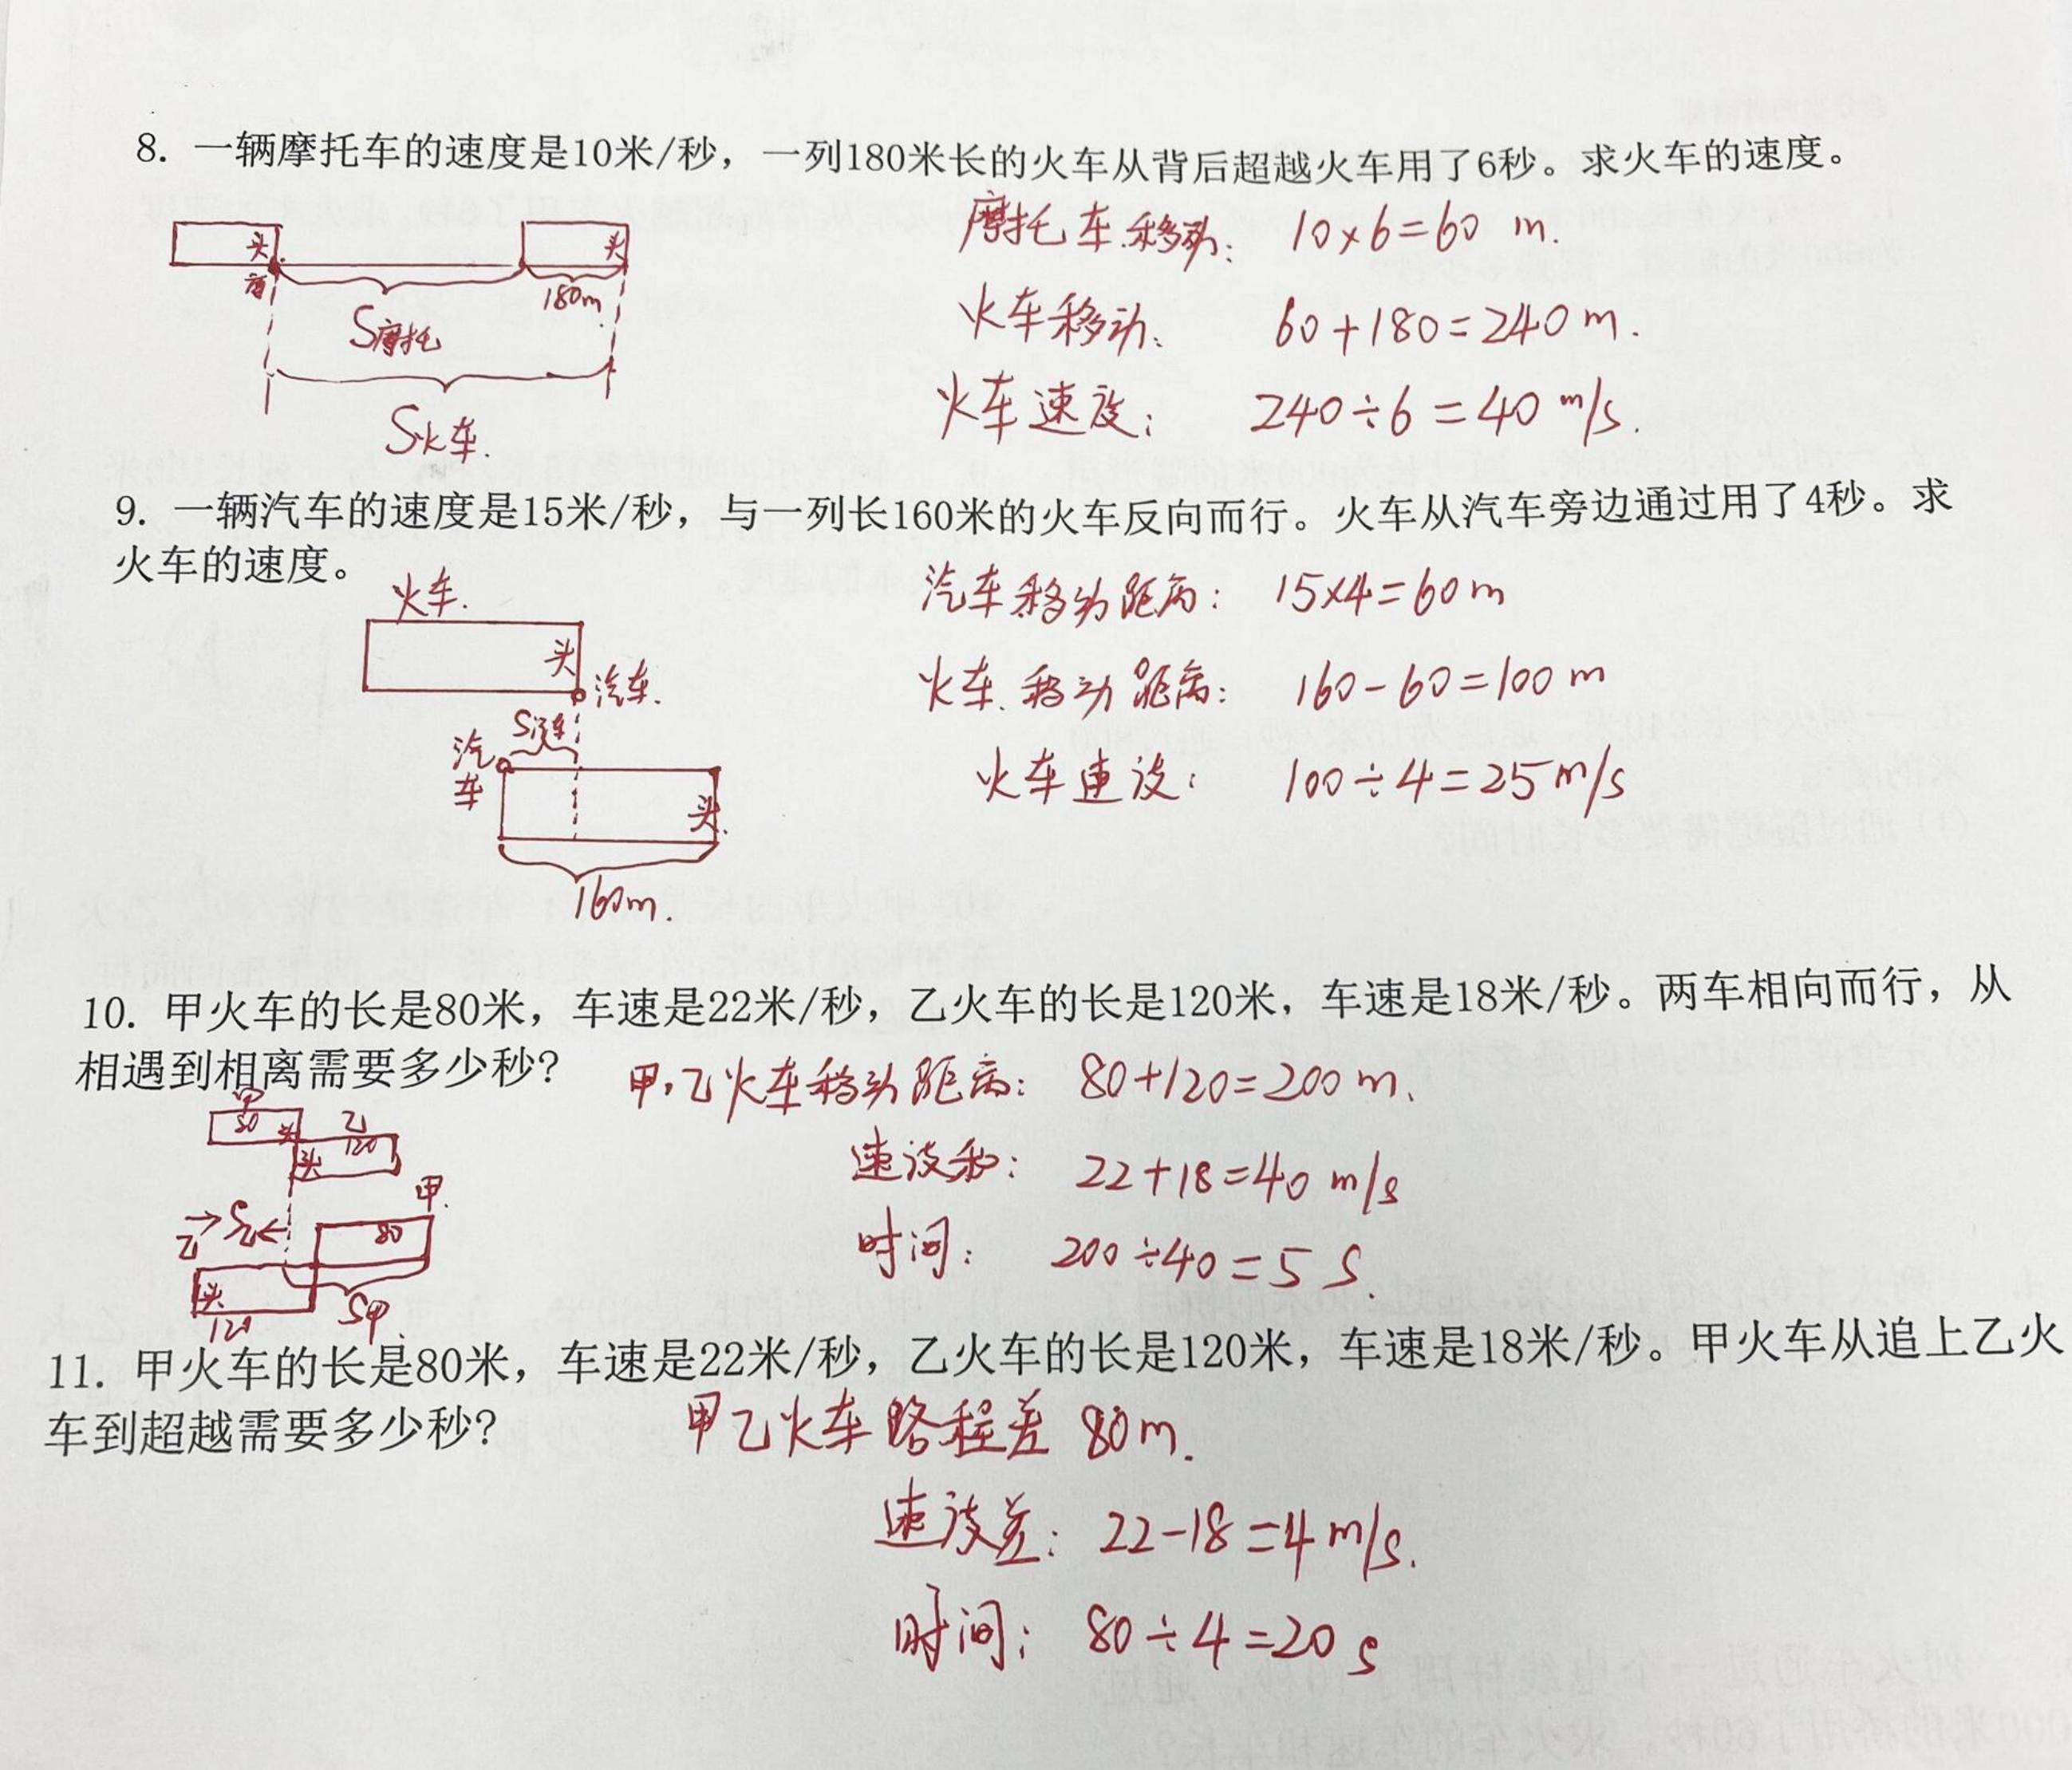 8. 一辆摩托车的速度是10米/秒，一列180米长的火车从背后超越火车用了6秒。求火车的速度。
摩托车移动: 10×6=60 m.
头 头
摩 180m
S摩托
火车移动: 60+180=240 m.
火车速度: 240÷6=40 m/s.
S火车.
9. 一辆汽车的速度是15米/秒，与一列长160米的火车反向而行。火车从汽车旁边通过用了4秒。求
火车的速度。
火车.
汽车移动距离: 15×4=60m
头
汽车.
火车移动距离: 160-60=100m
S汽车
汽车
火车速度: 100÷4=25m/s
头.
160m.
10. 甲火车的长是80米，车速是22米/秒，乙火车的长是120米，车速是18米/秒。两车相向而行，从
相遇到相离需要多少秒?
甲,乙火车移动距离: 80+120=200m.
甲
80 头 乙
头 120
速度和: 22+18=40 m/s
甲.
乙 S乙 80
时间: 200÷40=5 S.
头
120 S甲
11. 甲火车的长是80米，车速是22米/秒，乙火车的长是120米，车速是18米/秒。甲火车从追上乙火
车到超越需要多少秒?
甲乙火车路程差 80m.
速度差: 22-18=4m/s.
时间: 80÷4=20 s